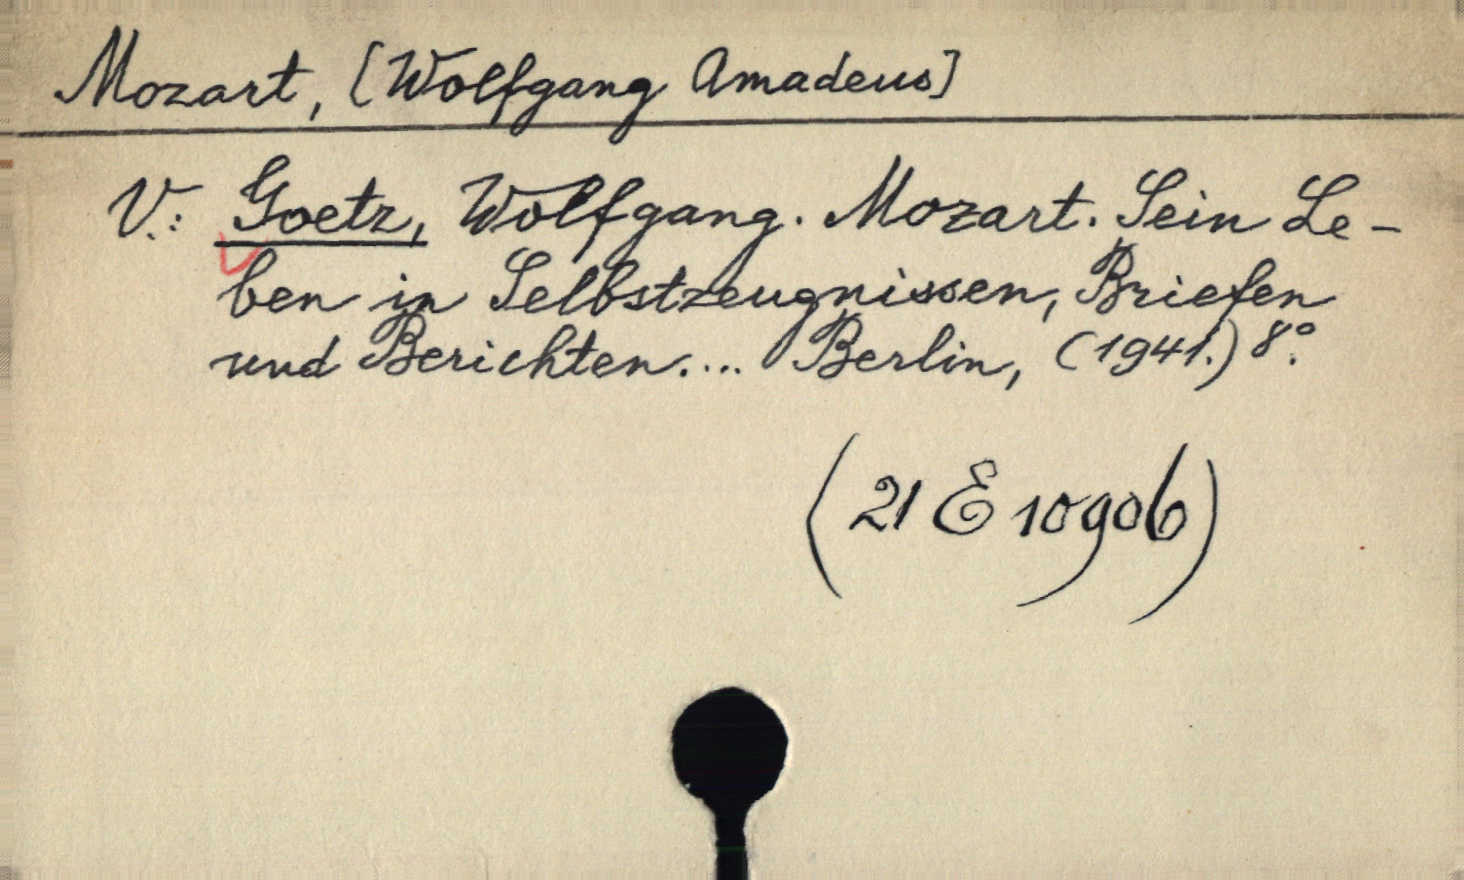 Mozart, [Wolfgang Amadeus]
V.: Goetz, Wolfgang. Mozart. Sein Le-
ben in Selbstzeugnissen, Briefen
und Berichten.... Berlin, (1941.) 8°.
(21 E 10906)